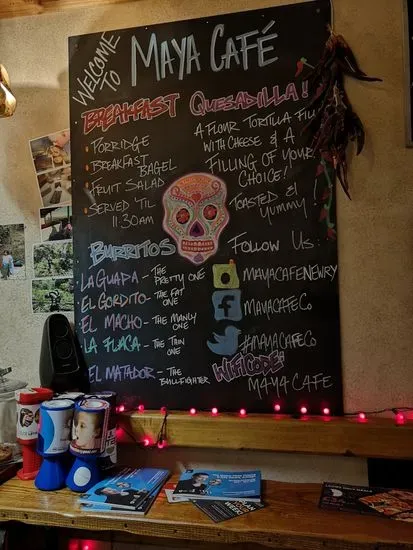 WELCOME TO
MAYA CAFÉ
BREAKFAST
• PORRIDGE
• BREAKFAST BAGEL
• FRUIT SALAD
• SERVED 'TIL 11:30AM
QUESADILLA!
A FLOUR TORTILLA FILL
WITH CHEESE & A
FILLING OF YOUR
CHOICE!
TOASTED &
YUMMY!
BURRITOS
LA GUAPA - THE PRETTY ONE
EL GORDITO - THE FAT ONE
EL MACHO - THE MANLY ONE
LA FLACA - THE THIN ONE
EL MATADOR - THE BULLFIGHTER
FOLLOW US:
MAYACAFENEWRY
MAYACAFECO
#MAYACAFECO
WIFI CODE
M4Y4 CAFE